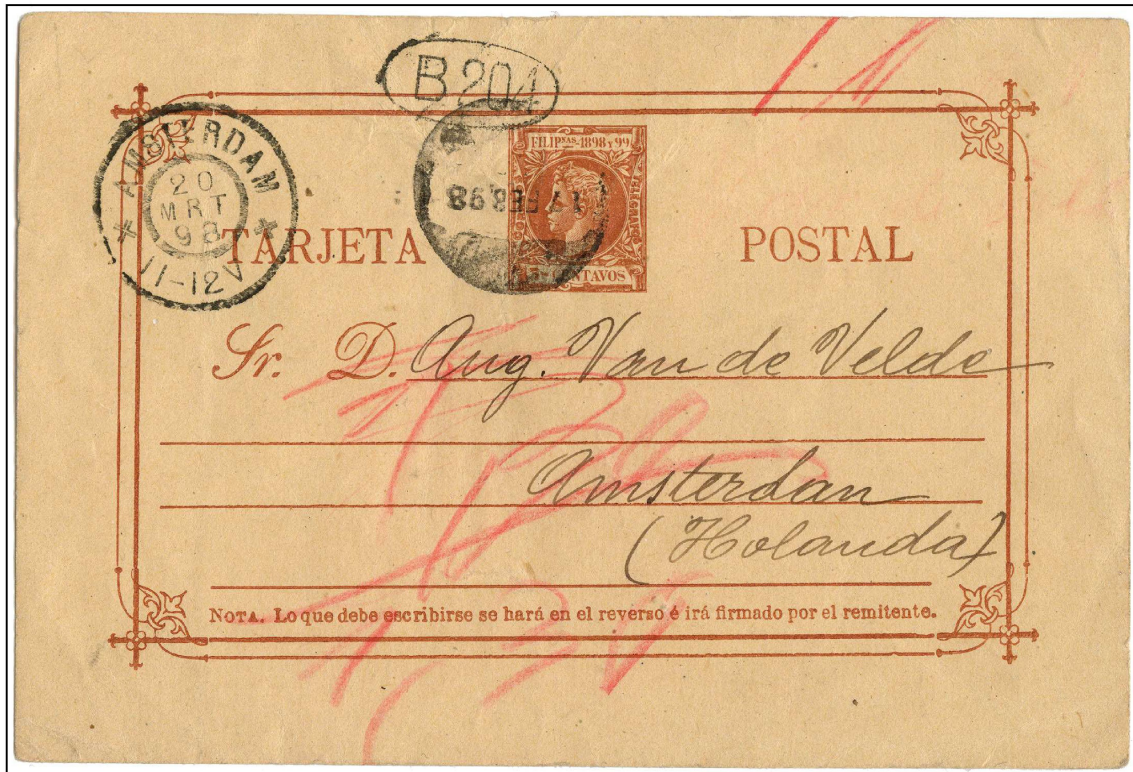 B204
AMSTERDAM
20
MRT
98
11-12V
FILIPSAS-1898 Y 99
17 FEB 98
CENTAVOS
TARJETA POSTAL
Sr. D. Aug. Van de Velde
Amsterdan
(Holanda)
NOTA. Lo que debe escribirse se hará en el reverso é irá firmado por el remitente.